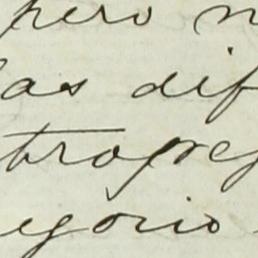 pero n
las dif
trope
egorio